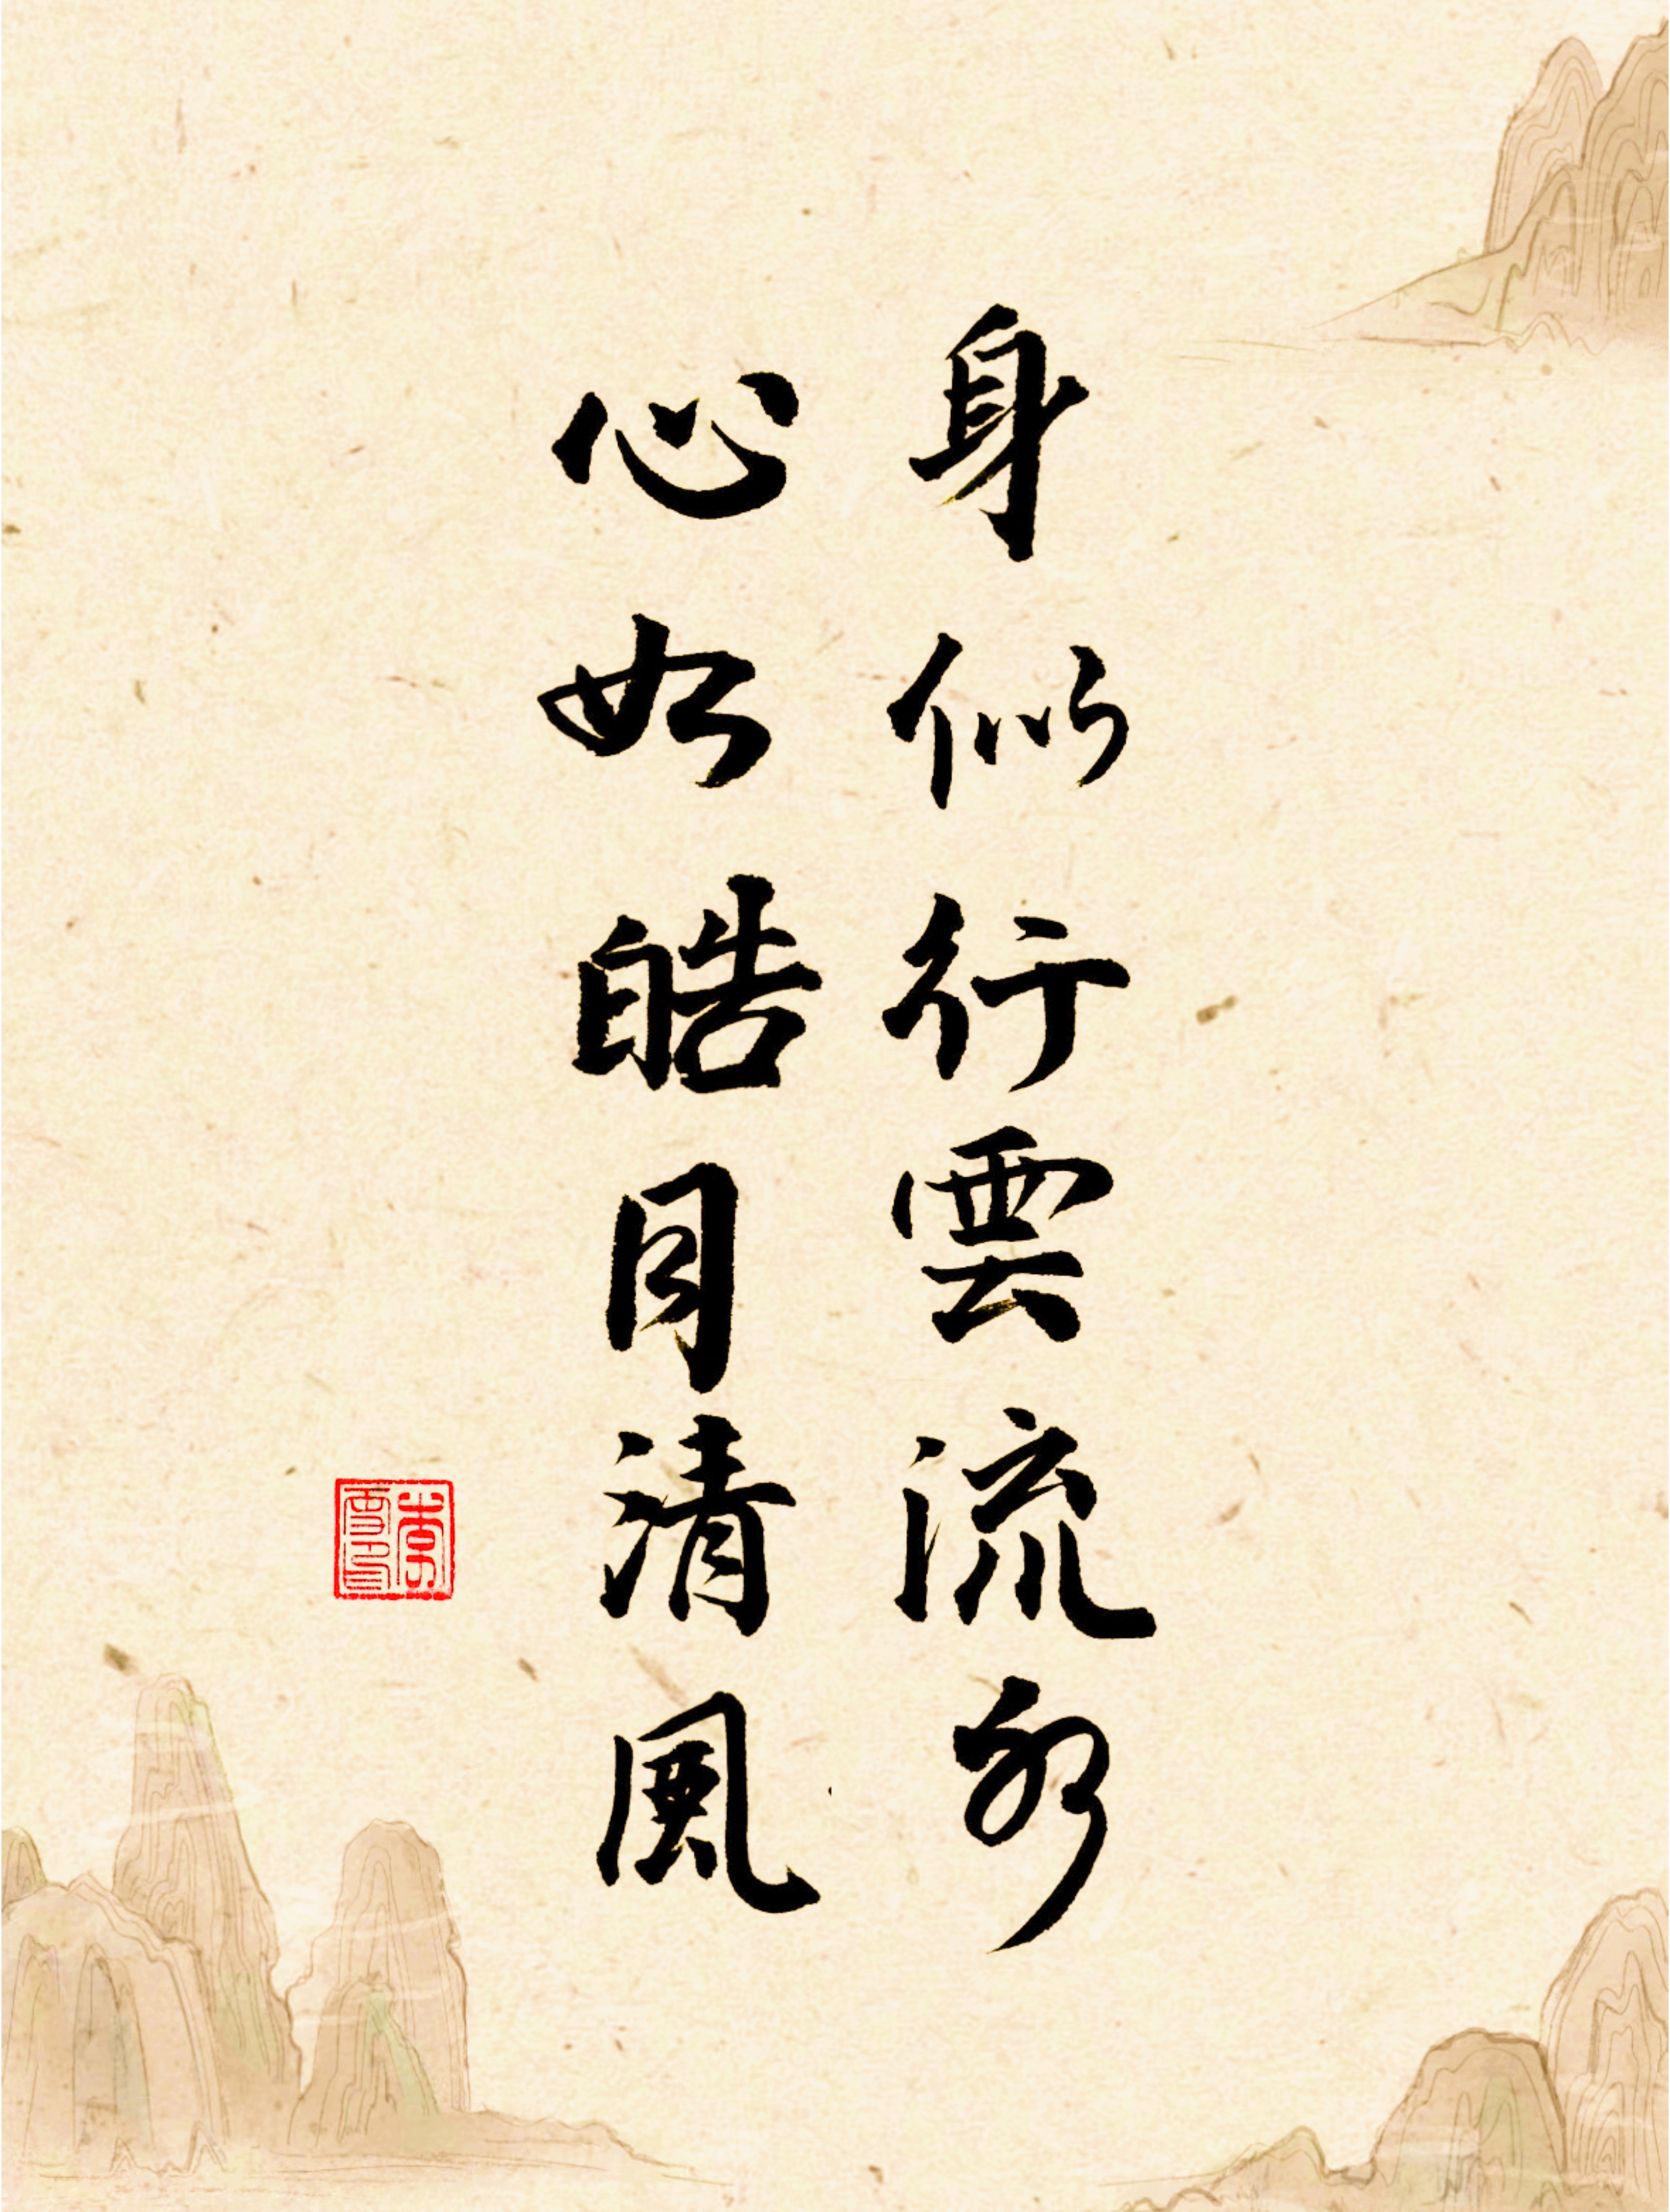 身似行雲流水
心如皓月清風
李雪印